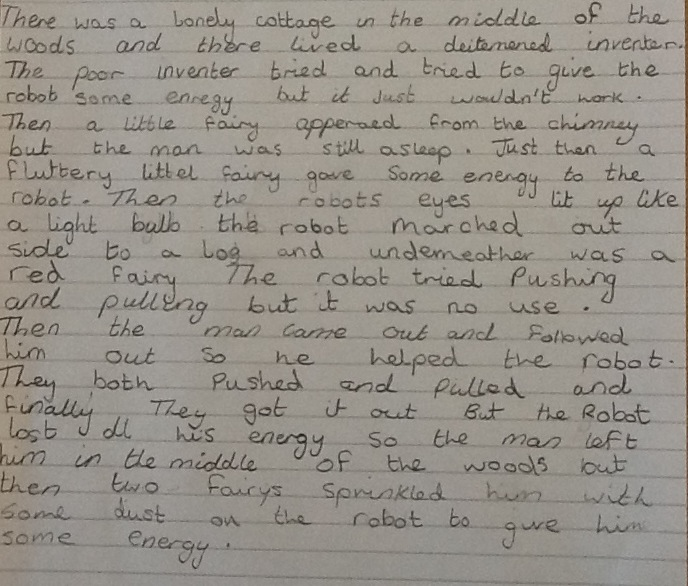 There was a lonely cottage in the middle of the
woods and there lived a deitemened inventer.
The poor inventer tried and tried to give the
robot some enregy but it Just wouldn't work.
Then a little fairy apperaed from the chimney
but the man was still asleep. Just then a
fluttery littel fairy gave some energy to the
robot. Then the robots eyes lit up like
a light bulb the robot marched out
side to a log and underneather was a
red fairy The robot tried Pushing
and pulleng but it was no use.
Then the man came out and followed
him out so he helped the robot.
They both Pushed and pulled and
finally They got it out But the Robot
lost all his energy so the man left
him in the middle of the woods but
then two fairys sprinkled him with
some dust on the robot to give him
some energy.